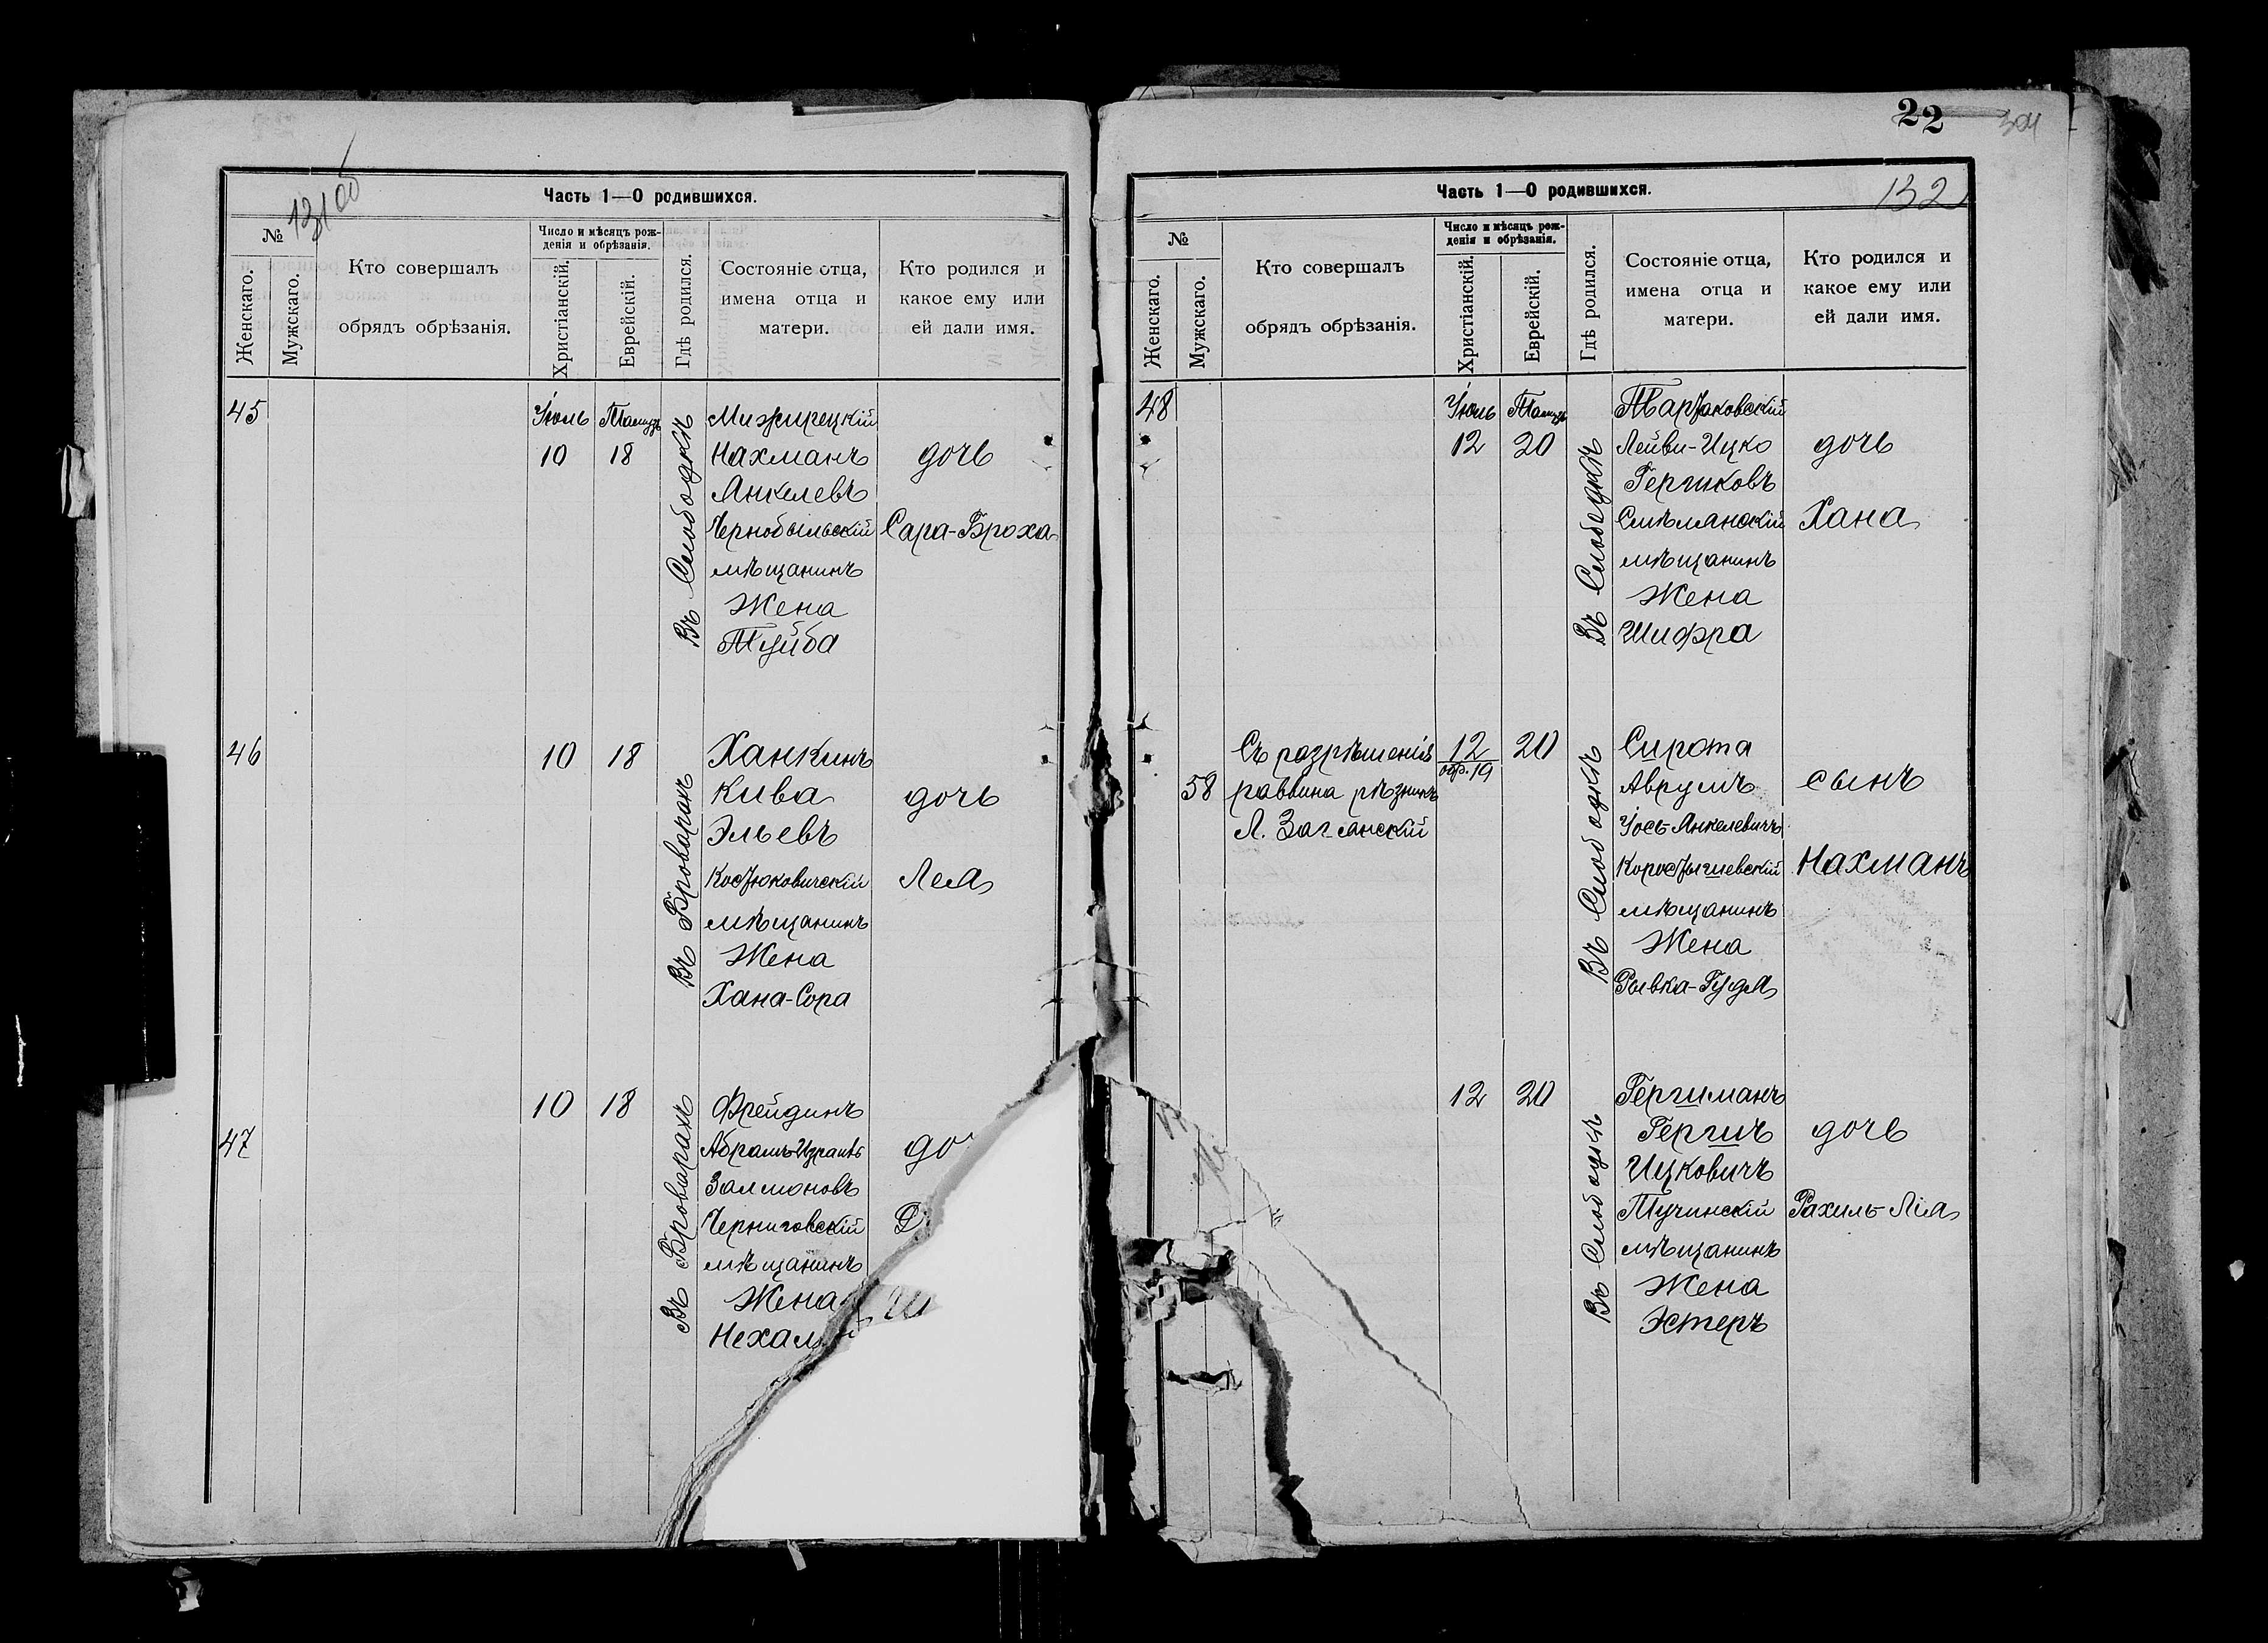 131 об
Часть 1—О родившихся.
№
Женскаго.
Мужскаго.
Кто совершалъ
обрядъ обрѣзанія.
Число и мѣсяцъ рож-
денія и обрѣзанія.
Христіанскій.
Еврейскій.
Гдѣ родился.
Состояніе отца,
имена отца и
матери.
Кто родился и
какое ему или
ей дали имя.
45
Іюль
10
Тамузъ
18
Въ Слободкѣ
Мижирецкій
Нахманъ
Анкелевъ
Чернобыльскій
мѣщанинъ
Жена
Туйба
дочь
Сара-Броха
46
10
18
Въ Броварахъ
Ханкинъ
Кива
Эльевъ
Костюковичскій
мѣщанинъ
Жена
Хана-Сора
дочь
Леа
47
10
18
Въ Броварахъ
Фрейдинъ
Абрамъ-Израиль
Залмоновъ
Черниговскій
мѣщанинъ
Жена
Нехам
до
22
132
Часть 1—О родившихся.
№
Женскаго.
Мужскаго.
Кто совершалъ
обрядъ обрѣзанія.
Число и мѣсяцъ рож-
денія и обрѣзанія.
Христіанскій.
Еврейскій.
Гдѣ родился.
Состояніе отца,
имена отца и
матери.
Кто родился и
какое ему или
ей дали имя.
48
Іюль
12
Тамузъ
20
Въ Слободкѣ
Тартаковскій
Лейви-Ицко
Гершковъ
Смѣлянскій
мѣщанинъ
Жена
Шифра
дочь
Хана
58
Съ разрѣшенія
раввина рѣзникъ
Л. Заславскій
12
обр. 19
20
Въ Слободкѣ
Сирота
Аврумъ
Іось-Анкелевичъ
Коростышевскій
мѣщанинъ
Жена
Рывка-Гудя
сынъ
Нахманъ
12
20
Въ Слободкѣ
Гершманъ
Гершъ
Ицковичъ
Тучинскій
мѣщанинъ
Жена
Эстеръ
дочь
Рахиль-Лія